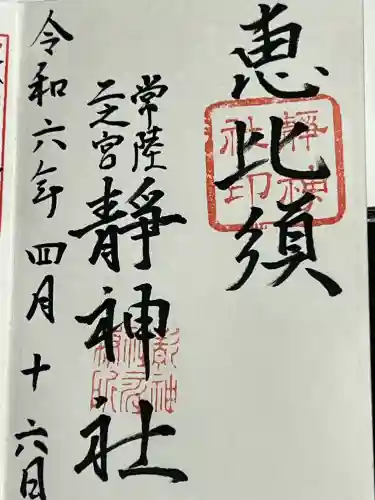 恵比須
常陸
二之宮
靜神社
令和六年四月十六日
靜神
社印